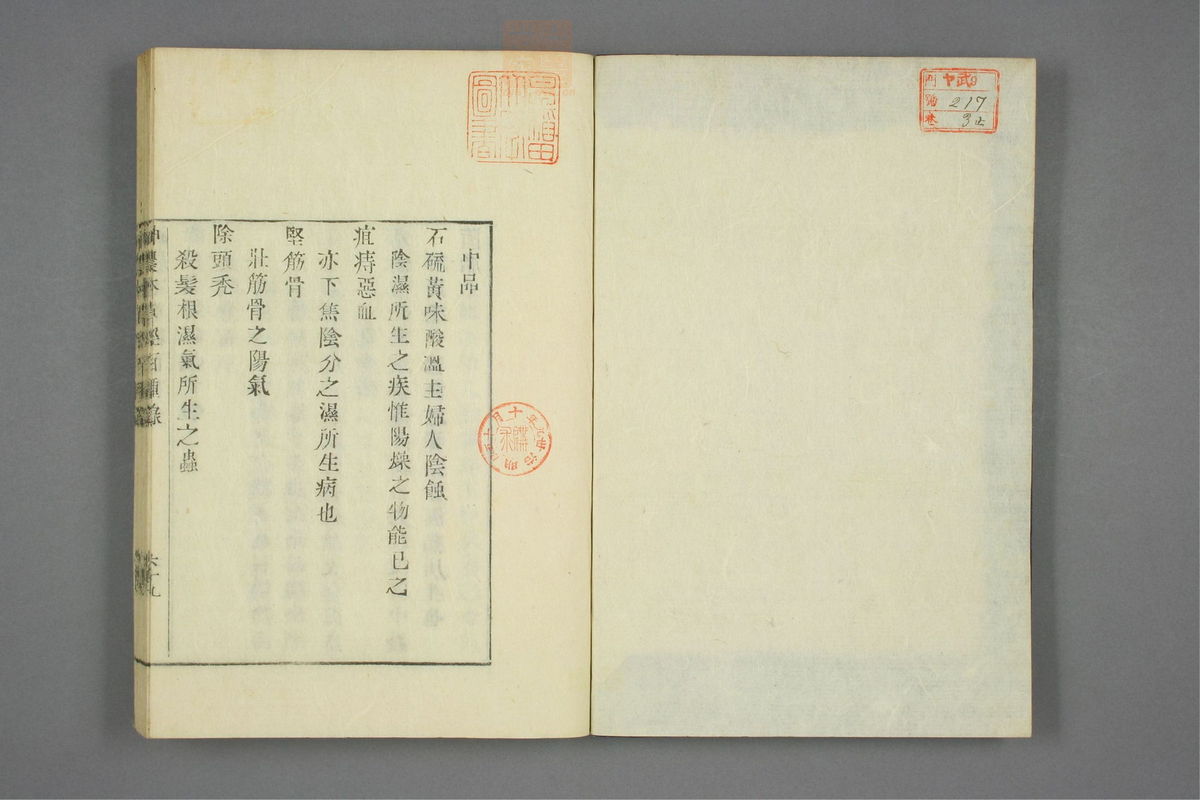 中品
石硫黃味酸溫主婦人陰蝕
陰濕所生之疾惟陽燥之物能已之
疽痔惡血
亦下焦陰分之濕所生病也
堅筋骨
壯筋骨之陽氣
除頭禿
殺髮根濕氣所生之蟲
神農本草經百種錄
六十九
門 ヤ武9
號 217
卷 3止
圖書